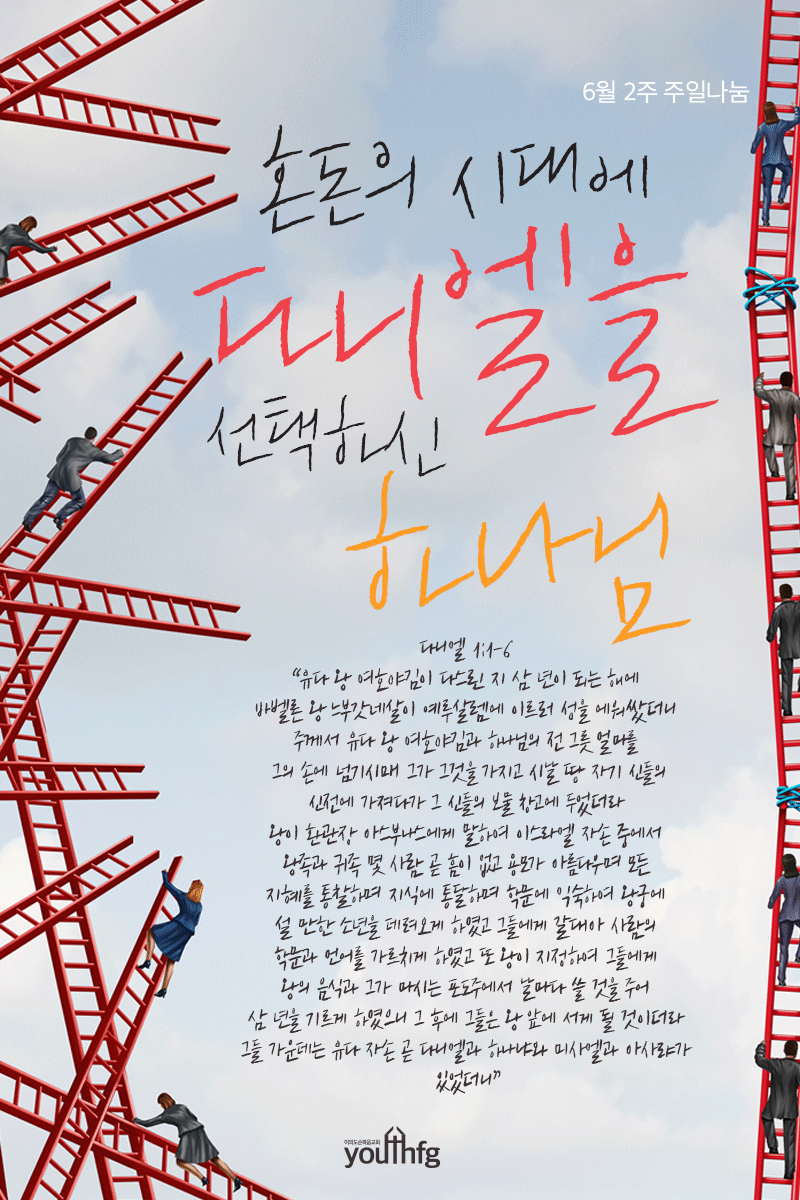 6월 2주 주일나눔
혼돈의 시대에
다니엘을
선택하신
하나님
다니엘 1:1-6
“유다 왕 여호야김이 다스린 지 삼 년이 되는 해에
바벨론 왕 느부갓네살이 예루살렘에 이르러 성을 에워쌌더니
주께서 유다 왕 여호야김과 하나님의 전 그릇 얼마를
그의 손에 넘기시매 그가 그것을 가지고 시날 땅 자기 신들의
신전에 가져다가 그 신들의 보물 창고에 두었더라
왕이 환관장 아스부나스에게 말하여 이스라엘 자손 중에서
왕족과 귀족 몇 사람 곧 흠이 없고 용모가 아름다우며 모든
지혜를 통찰하며 지식에 통달하며 학문에 익숙하여 왕궁에
설 만한 소년을 데려오게 하였고 그들에게 갈대아 사람의
학문과 언어를 가르치게 하였고 또 왕이 지정하여 그들에게
왕의 음식과 그가 마시는 포도주에서 날마다 쓸 것을 주어
삼 년을 기르게 하였으니 그 후에 그들은 왕 앞에 서게 될 것이더라
그들 가운데는 유다 자손 곧 다니엘과 하나냐와 미사엘과 아사랴가
있었더니”
여의도순복음교회
youthfg